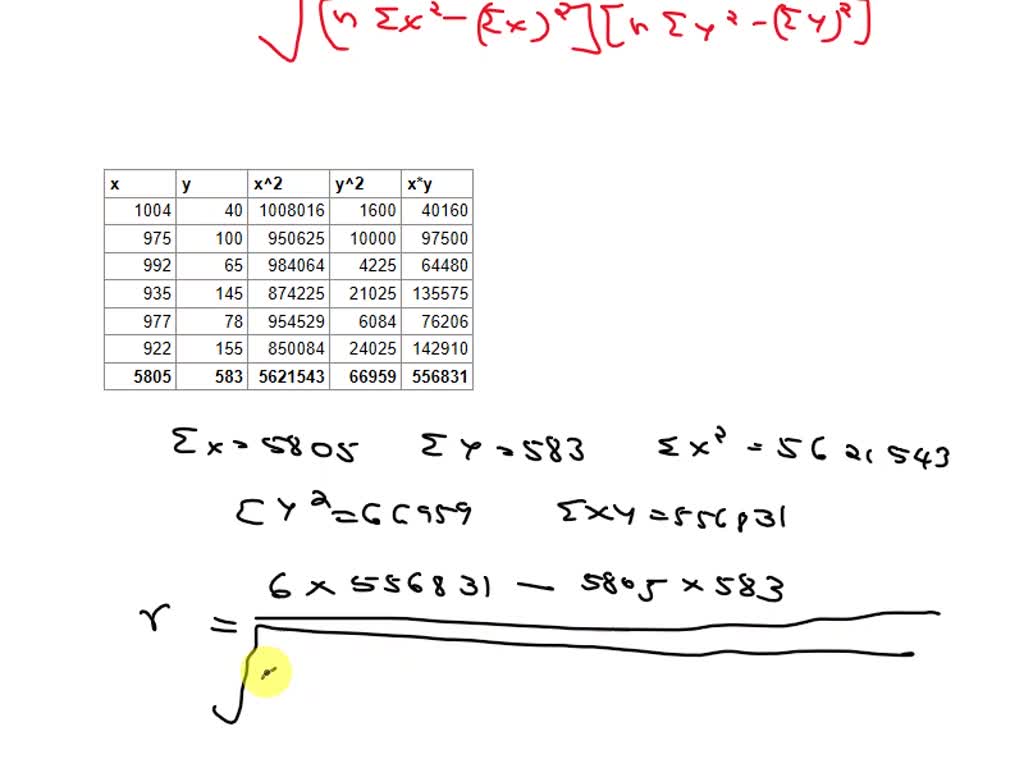 √[n Σx² - (Σx)²][n Σy² - (Σy)²]
x y x^2 y^2 x*y
1004 40 1008016 1600 40160
975 100 950625 10000 97500
992 65 984064 4225 64480
935 145 874225 21025 135575
977 78 954529 6084 76206
922 155 850084 24025 142910
5805 583 5621543 66959 556831
Σx = 5805 Σy = 583 Σx² = 5621543
Σy² = 66959 Σxy = 556831
6 × 556831 – 5805 × 583
r = √